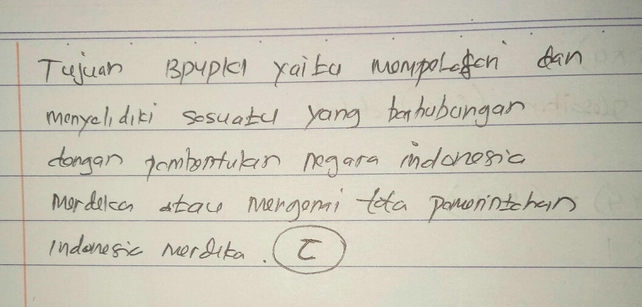 Tujuan BPUPKI yaitu mempelajari dan
menyelidiki sesuatu yang berhubungan
dengan pembentukan negara indonesia
merdeka atau mengenai tata pemerintahan
indonesia merdeka. C